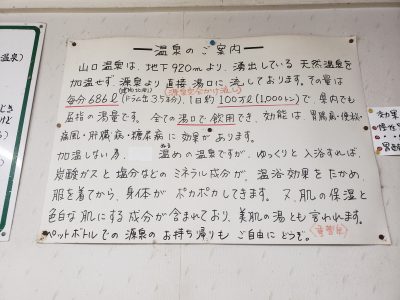 温泉のご案内
山口温泉は、地下920mより、湧出している天然温泉を
加温せず、源泉より直接湯口に流しております。その量は
(源泉完全かけ流し)
毎分686ℓ(ドラム缶3.5缶分)、1日約100万ℓ(1,000トン)で、県内でも
屈指の湯量です。全ての湯口で飲用でき、効能は、胃腸病・便秘・
痛風・肝臓病・糖尿病に効果があります。
加温しない為、温めの温泉ですが、ゆっくりと入浴すれば、
炭酸ガスと塩分などのミネラル成分が、温浴効果をたかめ、
服を着てから、身体がポカポカしてきます。又、肌の保湿と
色白な肌にする成分が含まれており、美肌の湯とも言われます。
ペットボトルでの源泉のお持ち帰りもご自由にどうぞ。
温泉)
効果